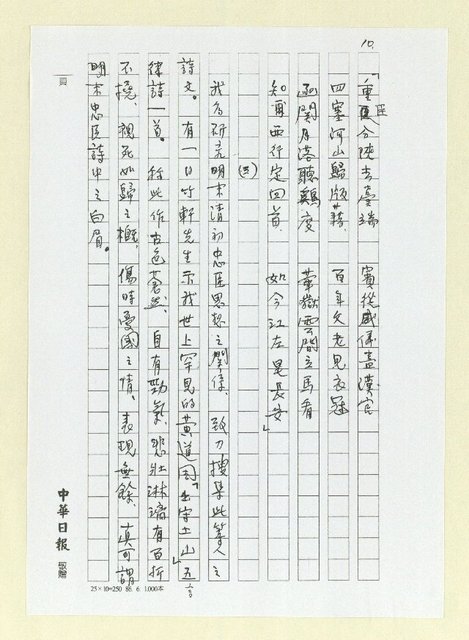 10.
「重臣分陝去臺端　賓從威儀盡漢官
四塞河山歸版籍　百年父老見衣冠
函關月落聽鷄度　華嶽雲開立馬看
知爾西行定回首　如今江左是長安」
(五)
我為研究明末清初忠臣思想之關係，致力搜集此等人之
詩文。有一日竹軒先生示我世上罕見的黃道周「出守土山」五言
律詩一首。　此作古色蒼然，自有勁氣，悲壯淋漓有百折
不撓，視死如歸之概，傷時憂國之情，表現無餘，真可謂
明末忠臣詩中之白眉。
頁
中華日報
25×10=250 86. 6. 1,000本